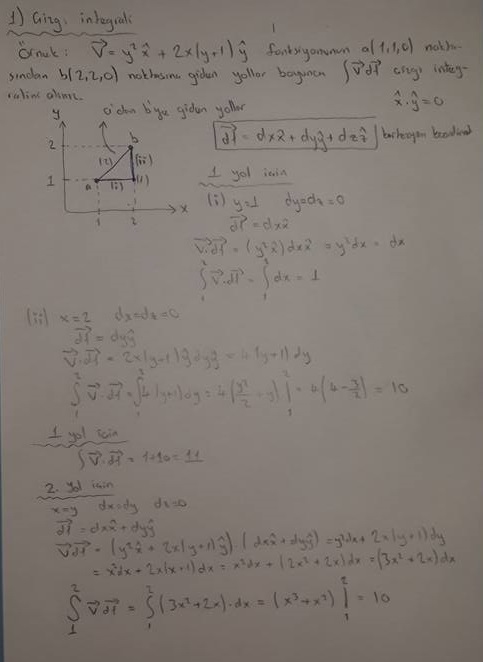 1) Çizgi integrali
Örnek: V⃗ = y²x̂ + 2x(y+1)ŷ fonksiyonunun a(1,1,0) nokta-
sından b(2,2,0) noktasına giden yollar boyunca ∫V⃗dl⃗ çizgi integ-
ralini alınız.
x̂.ŷ=0
a'dan b'ye giden yollar
y
2
1
1 2
x
a
b
(2)
(ii)
(i)
(1)
dl⃗ = dxx̂ + dyŷ + dzẑ kartezyen koordinat
1 yol için
(i) y=1 dy=dz=0
dl⃗ = dxx̂
V⃗.dl⃗ = (y²x̂)dxx̂ = y²dx = dx
∫₁² V⃗.dl⃗ = ∫₁² dx = 1
(ii) x=2 dx=dz=0
dl⃗ = dyŷ
V⃗.dl⃗ = 2x(y+1)ŷdyŷ = 4(y+1)dy
∫₁² V⃗.dl⃗ = ∫₁² 4(y+1)dy = 4(y²/2 + y)|₁² = 4(4-3/2) = 10
1 yol için
∫V⃗.dl⃗ = 1+10 = 11
2. Yol için
x=y dx=dy dz=0
dl⃗ = dxx̂ + dyŷ
V⃗dl⃗ = (y²x̂ + 2x(y+1)ŷ).(dxx̂ + dyŷ) = y²dx + 2x(y+1)dy
= x²dx + 2x(x+1)dx = x²dx + (2x²+2x)dx = (3x²+2x)dx
∫₁² V⃗dl⃗ = ∫₁² (3x²+2x).dx = (x³+x²)|₁² = 10